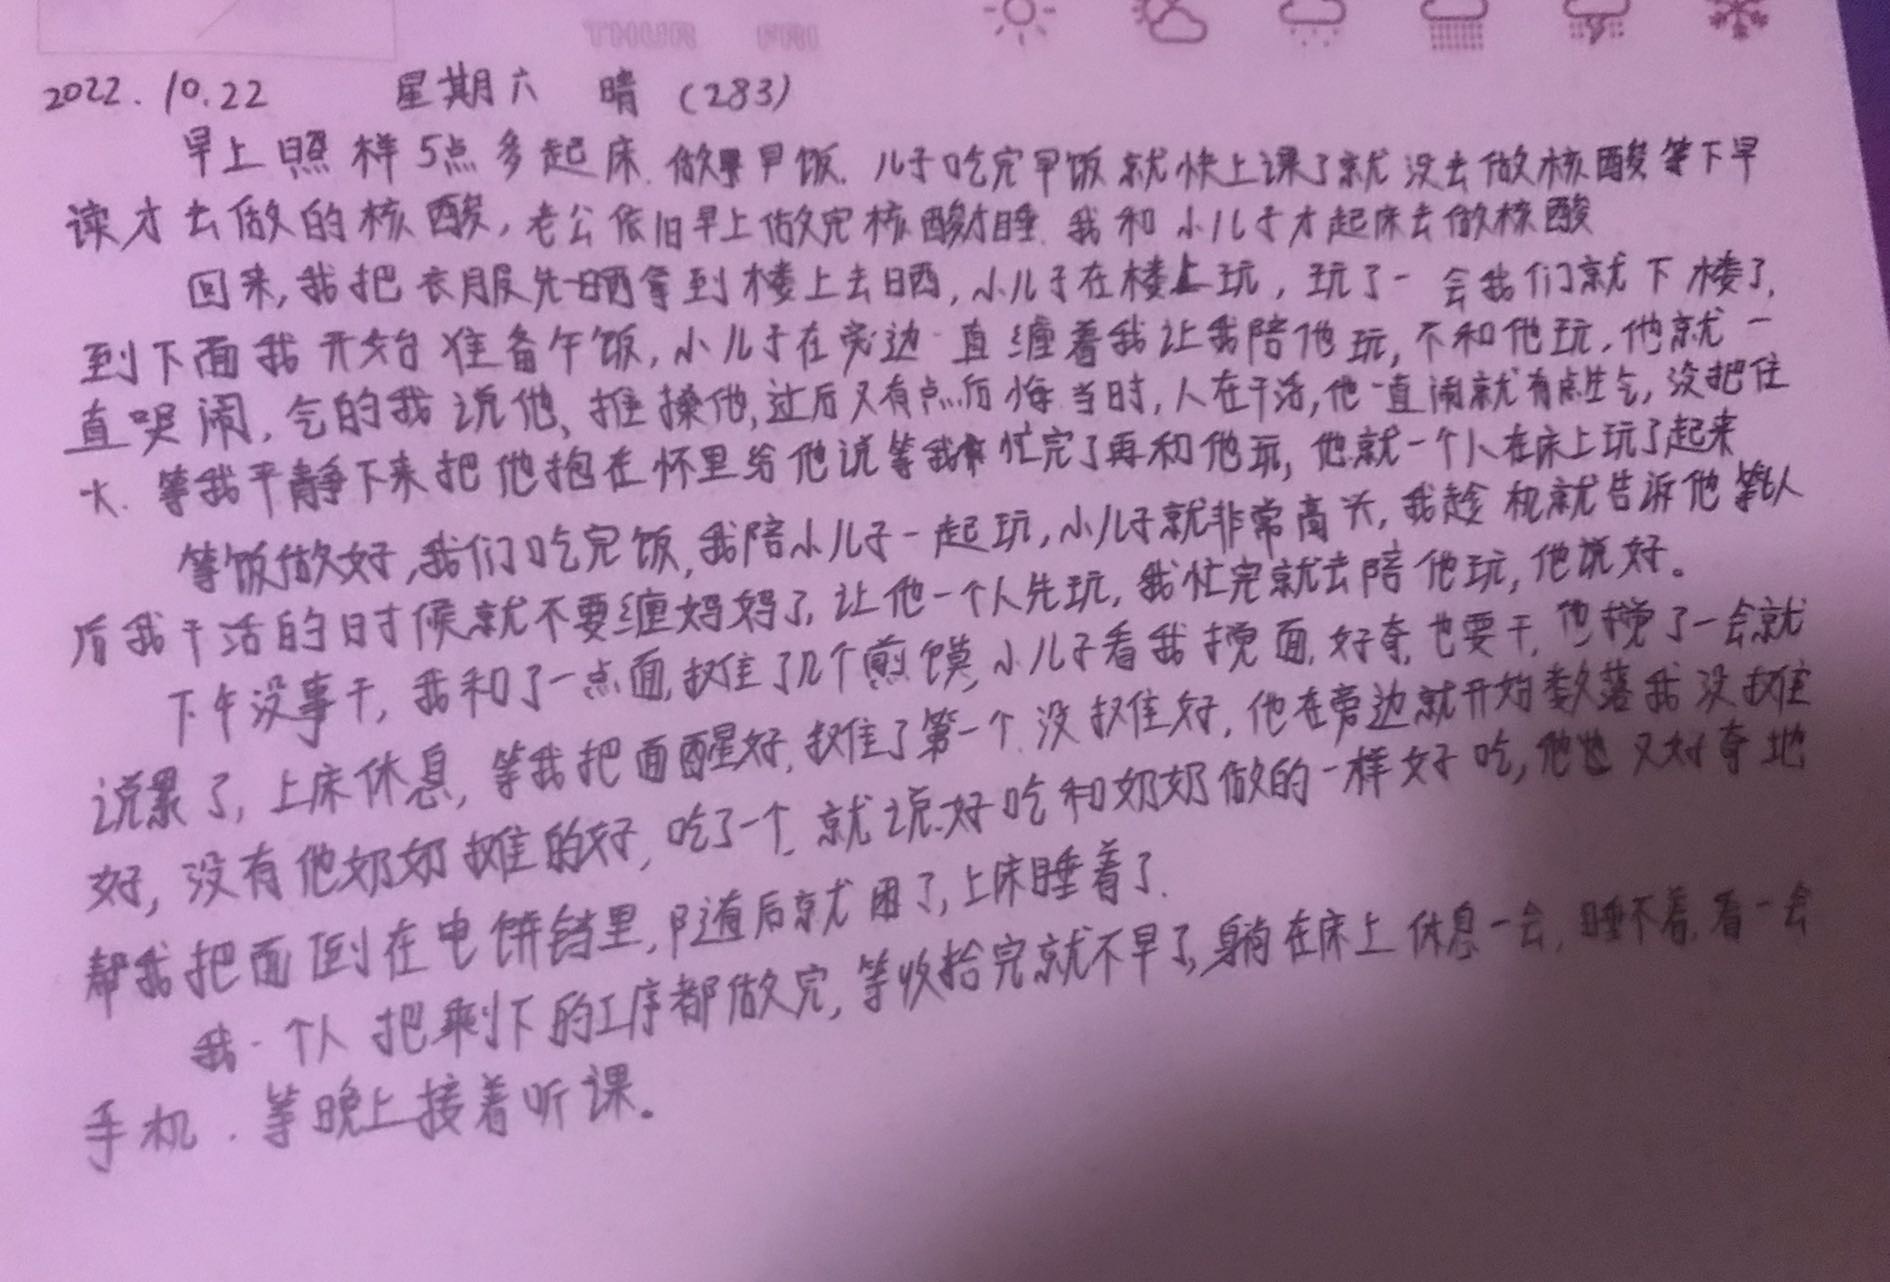 THUR FRI
2022.10.22 星期六 晴 (283)
早上照样5点多起床.做早饭.儿子吃完早饭就快上课了就没去做核酸等下早
读才去做的核酸,老公依旧早上做完核酸才睡.我和小儿子才起床去做核酸
回来,我把衣服先晒拿到楼上去晒,小儿子在楼上玩,玩了一会我们就下楼了,
到下面我开始准备午饭,小儿子在旁边一直缠着我让我陪他玩,不和他玩,他就一
直哭闹,气的我说他、推搡他,过后又有点后悔当时,人在干活,他一直闹就有点生气,没把住
火.等我平静下来把他抱在怀里给他说等我忙完了再和他玩,他就一个人在床上玩了起来
等饭做好,我们吃完饭,我陪小儿子一起玩,小儿子就非常高兴,我趁机就告诉他等以
后我干活的时候就不要缠妈妈了,让他一个人先玩,我忙完就去陪他玩,他说好。
下午没事干,我和了一点面,摊了几个煎馍,小儿子看我搅面,好奇,也要干,他搅了一会就
说累了,上床休息,等我把面醒好,摊了第一个.没摊好,他在旁边就开始数落我没摊
好,没有他奶奶摊的好,吃了一个.就说好吃和奶奶做的一样好吃,他也又好奇地
帮我把面倒在电饼铛里,随后就困了,上床睡着了.
我一个人把剩下的工序都做完,等收拾完就不早了,躺在床上休息一会,睡不着,看一会
手机.等晚上接着听课。